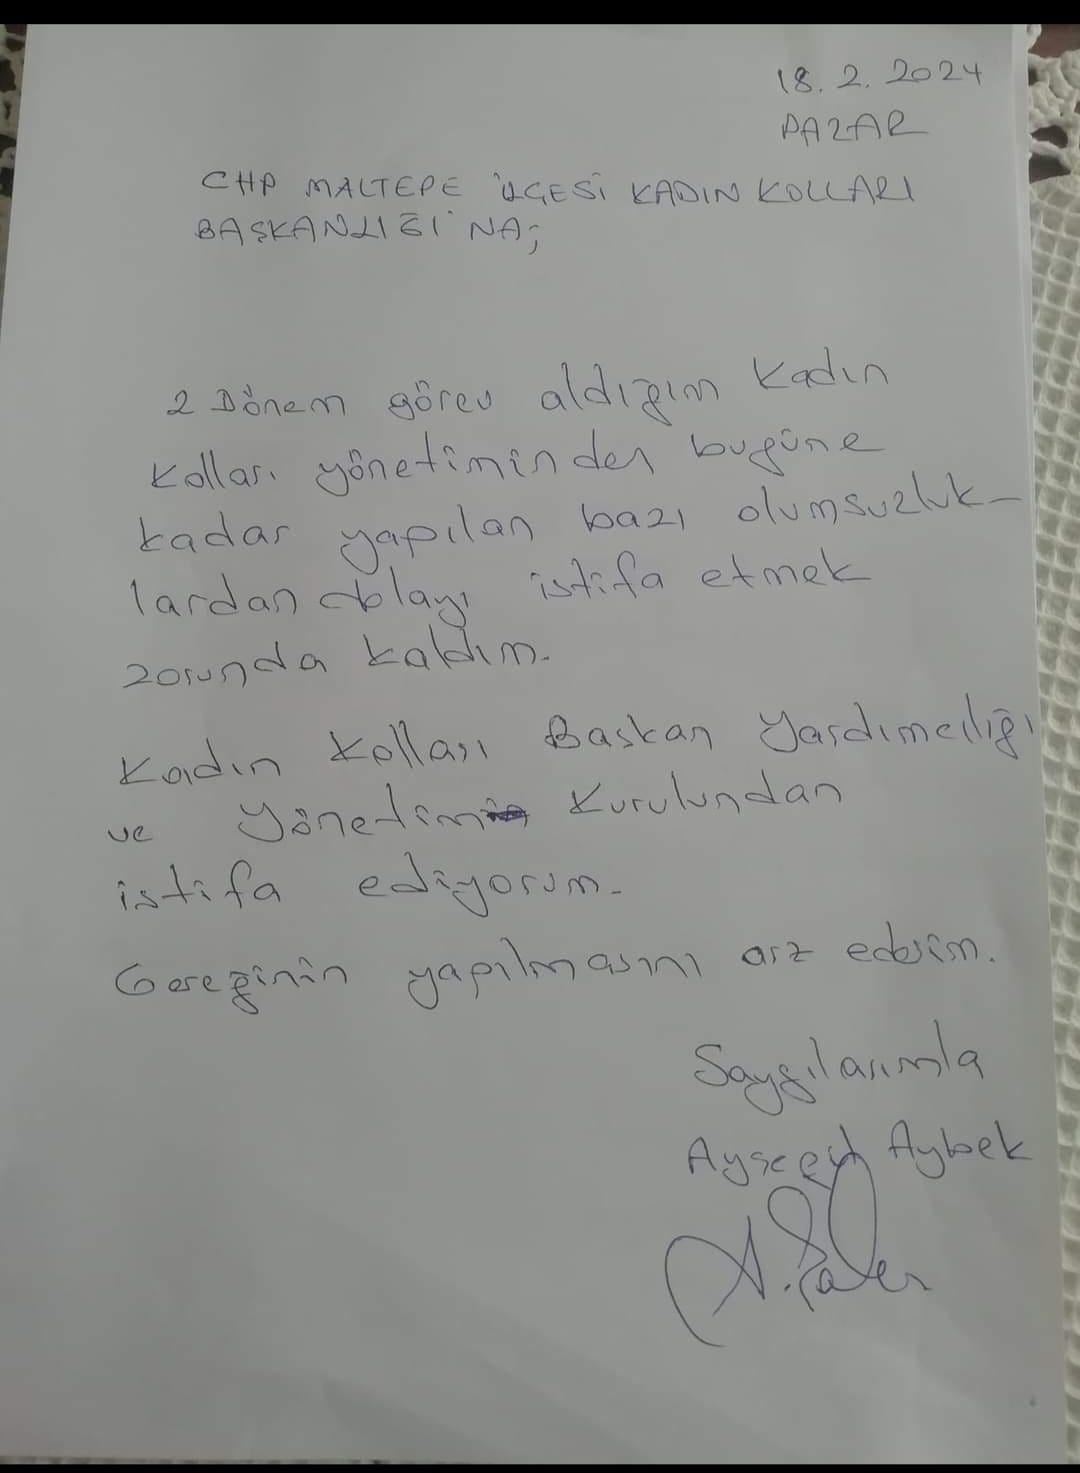 18.2.2024
PAZAR
CHP MALTEPE İLÇESİ KADIN KOLLARI
BAŞKANLIĞI'NA;
2 Dönem görev aldığım Kadın
Kolları yönetiminden bugüne
kadar yapılan bazı olumsuzluk-
lardan dolayı istifa etmek
zorunda kaldım.
Kadın Kolları Başkan Yardımcılığı
ve Yönetim Kurulundan
istifa ediyorum.
Gereğinin yapılmasını arz ederim.
Saygılarımla
Aybek